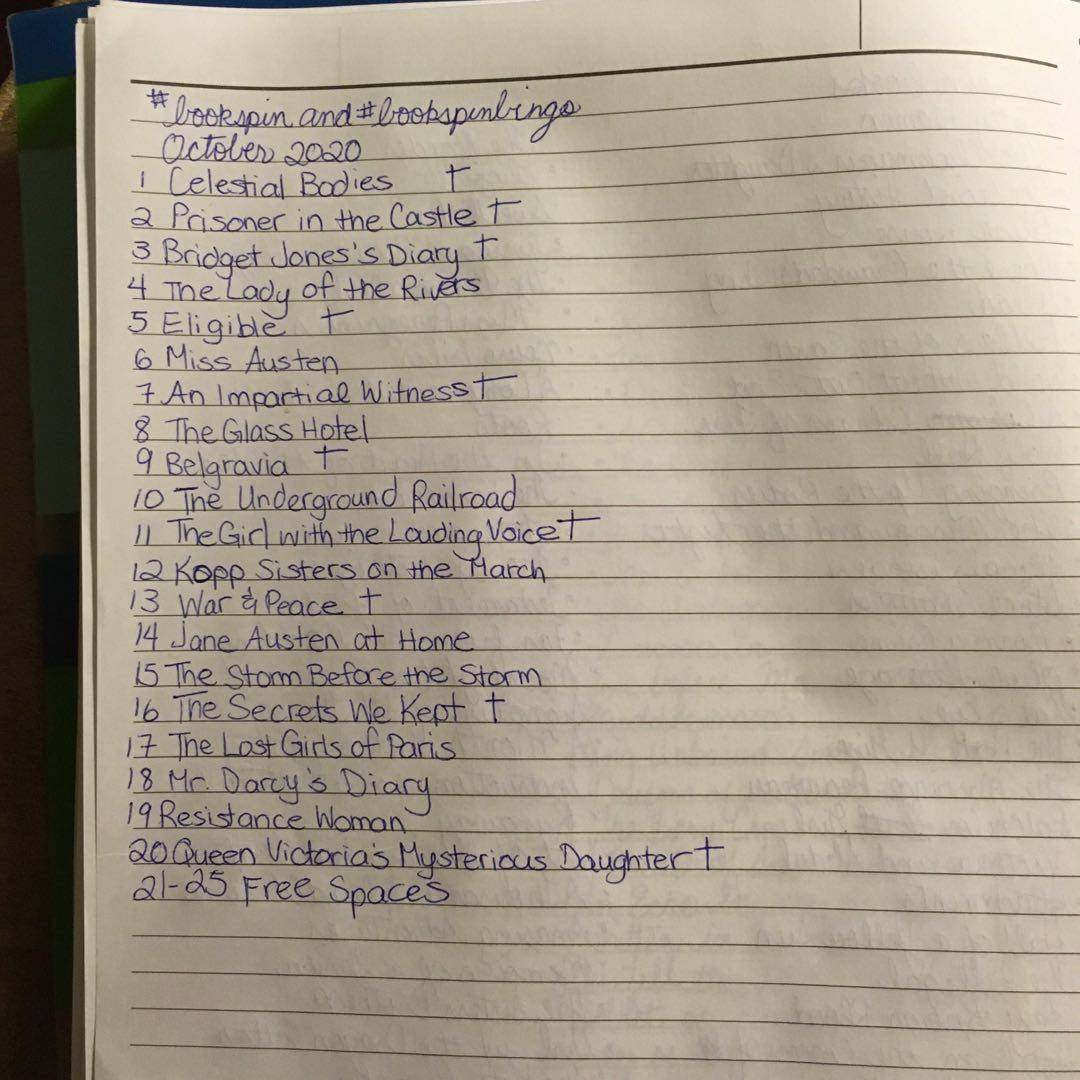 #bookspin and #bookspinbingo
October 2020
1 Celestial Bodies †
2 Prisoner in the Castle †
3 Bridget Jones's Diary †
4 The Lady of the Rivers
5 Eligible †
6 Miss Austen
7 An Impartial Witness †
8 The Glass Hotel
9 Belgravia †
10 The Underground Railroad
11 The Girl with the Louding Voice †
12 Kopp Sisters on the March
13 War & Peace †
14 Jane Austen at Home
15 The Storm Before the Storm
16 The Secrets We Kept †
17 The Lost Girls of Paris
18 Mr. Darcy's Diary
19 Resistance Woman
20 Queen Victoria's Mysterious Daughter †
21-25 Free Spaces